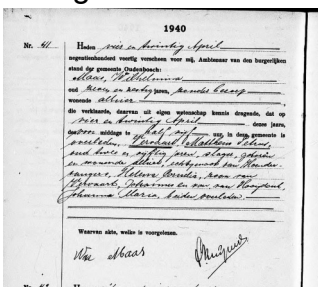 1940
Nr. 41
Heden vier en twintig April
negentienhonderd veertig verscheen voor mij, Ambtenaar van den burgerlijken
stand der gemeente Oudenbosch:
Maas, Wilhelmina
oud zeven en zestig jaren, zonder beroep
wonende alhier
die verklaarde, daarvan uit eigen wetenschap kennis dragende, dat op
vier en twintig April dezes jaars,
des voor middags te half vijf uur, in deze gemeente is
overleden, Vervaart, Mattheus Petrus,
oud twee en vijftig jaren, slager, geboren
en wonende alhier, echtgenoot van
Helena Cornelia, zoon van
Vervaart, Johannes en van van
Johanna Maria, beiden overleden.
Waarvan akte, welke is voorgelezen.
Wse Maas